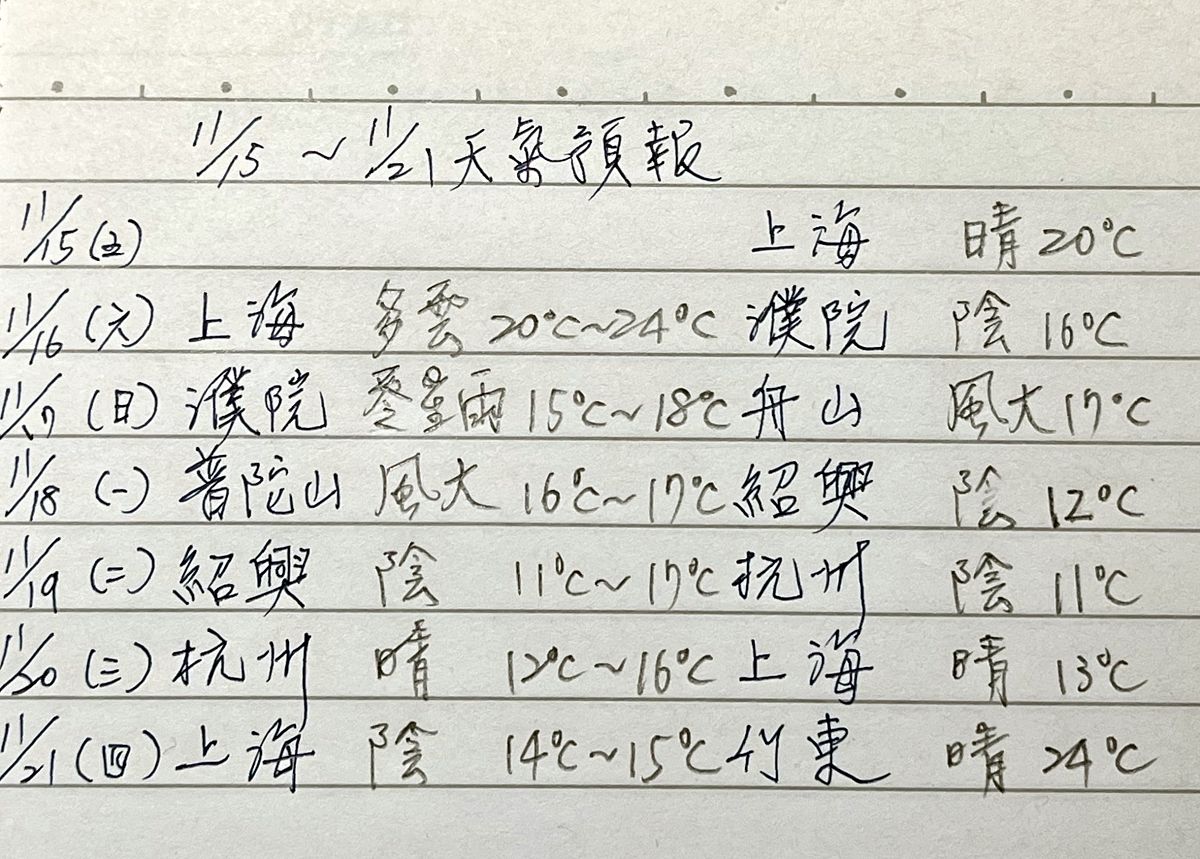 11/15 ~ 11/21 天氣預報
11/15 (五) 上海 晴 20°C
11/16 (六) 上海 多雲 20°C~24°C 濮院 陰 16°C
11/17 (日) 濮院 零星雨 15°C~18°C 舟山 風大 17°C
11/18 (一) 普陀山 風大 16°C~17°C 紹興 陰 12°C
11/19 (二) 紹興 陰 11°C~17°C 杭州 陰 11°C
11/20 (三) 杭州 晴 12°C~16°C 上海 晴 13°C
11/21 (四) 上海 陰 14°C~15°C 竹東 晴 24°C